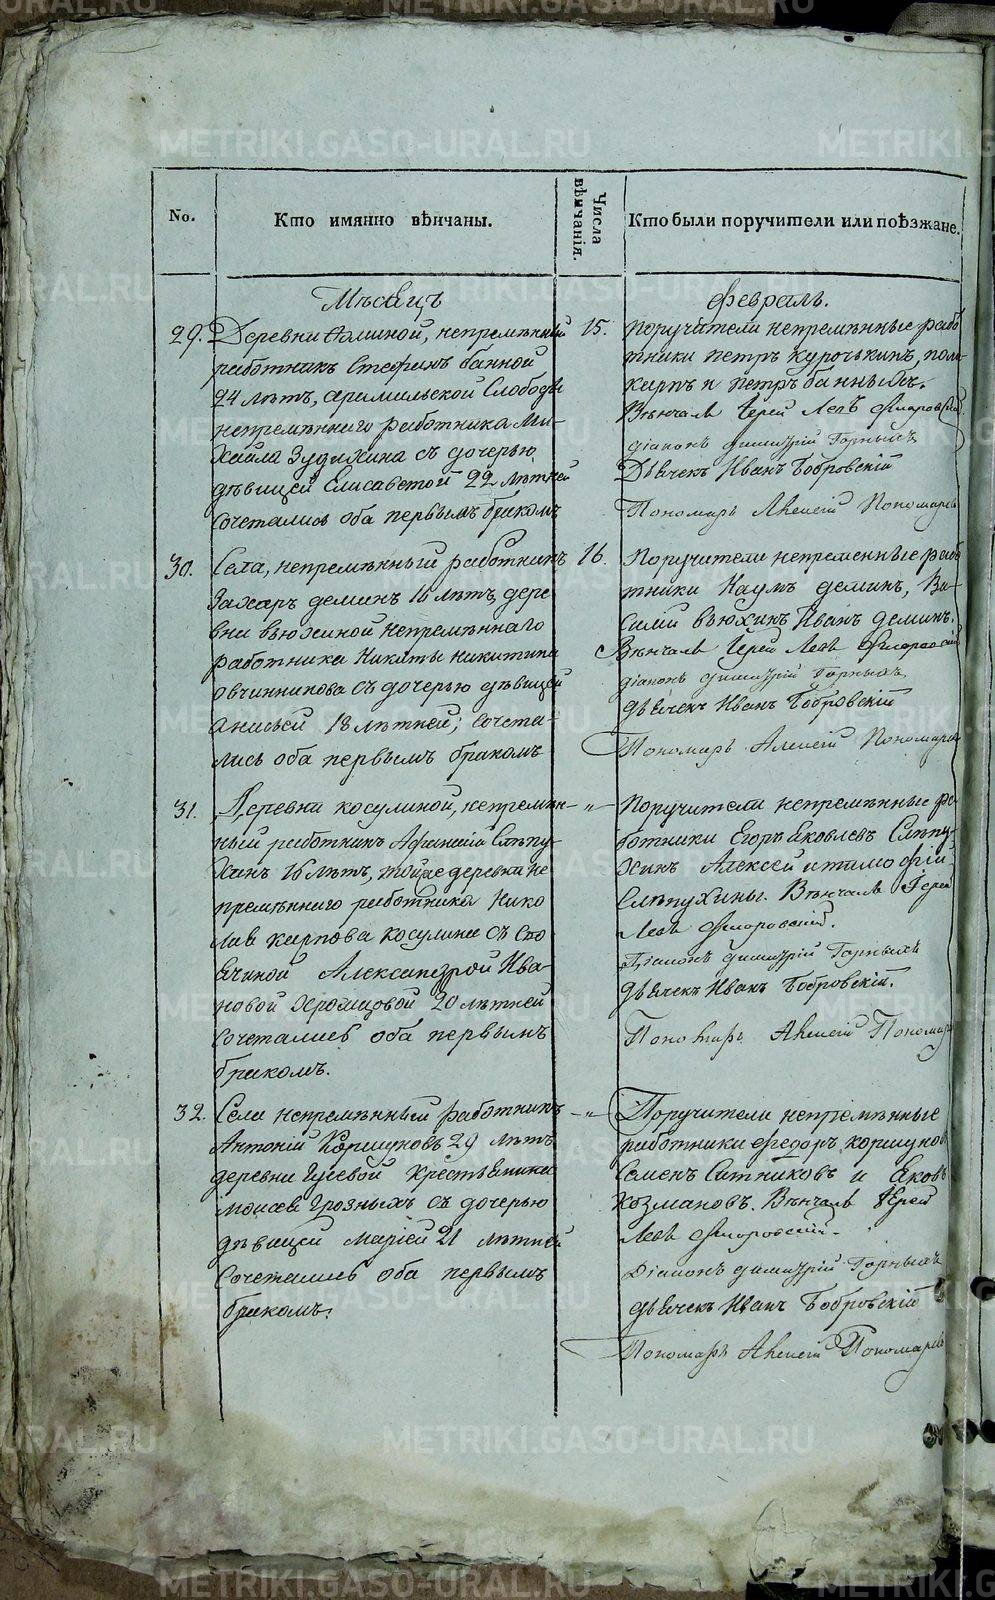 No.
Кто имянно вѣнчаны.
Числа вѣнчанія.
Кто были поручители или поѣзжане.
Мѣсяцъ
Февраль.
29.
Деревни непремѣнный
работникъ Стефанъ Банной
24 лѣтъ, арамильской Слободы
непремѣннаго работника Ми-
хайла Зудихина съ дочерью
дѣвицей Елисаветой 22 лѣтней
сочетались оба первымъ бракомъ
15.
Поручители непремѣнные рабо
тники петръ курочькинъ, поли
карпъ и петръ банныхъ.
Вѣнчалъ Iерей Левъ
діаконъ димитрій Горныхъ
Дьячекъ Иванъ Бобровскій
Пономарь Алексій Пономаревъ
30.
Села, непремѣнный работникъ
Захаръ деминъ 16 лѣтъ, дере
вни вьюхиной непремѣннаго
работника Никиты никитина
овчинникова съ дочерью дѣвицей
анисьей 18 лѣтней; сочета-
лись оба первымъ бракомъ
16.
Поручители непременные рабо
тники Наумъ деминъ, Ва-
силій вьюхинъ Иванъ деминъ.
Вѣнчалъ Iерей Левъ
діаконъ димитрій Горныхъ
дьячекъ Иванъ Бобровскій
Пономарь Алексій Пономаревъ
31.
Деревни косулиной, непремѣн-
ный работникъ Афанасій Слѣпу-
хинъ 16 лѣтъ, тойже деревни не
премѣннаго работника Нико
лая карпова косулина съ
Александрой Ива-
новой 20 лѣтней
сочетались оба первымъ
бракомъ.
-"-
Поручители непремѣнные ра-
ботники Егоръ Яковлевъ Слѣпу-
хинъ Алексей и тимофій
Слѣпухины. Вѣнчалъ Iерей
Левъ
Діаконъ димитрій Горныхъ
дьячекъ Иванъ Бобровскій.
Пономарь Алексій Пономар
32.
Села непремѣнный работникъ
Антоній Коршуновъ 29 лѣтъ
деревни Гусевой крестьянина
моисея Грозныхъ съ дочерью
дѣвицей маріей 21 лѣтней
Сочетались оба первымъ
бракомъ.
-"-
Поручители непремѣнные
работники федоръ коршунов
Семенъ Ситниковъ и Яковъ
козмановъ. Вѣнчалъ Iерей
Левъ
Діаконъ димитрій Горныхъ
дьячекъ Иванъ Бобровскій
Пономарь Алексій Пономаревъ
METRIKI.GASO-URAL.RU